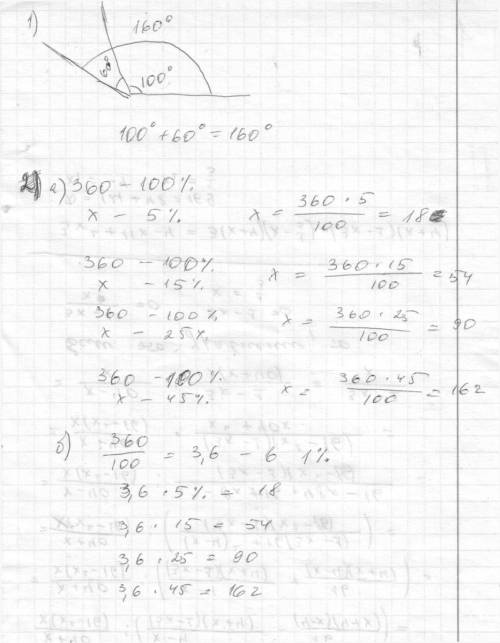 1)
160°
60°
100°
100° + 60° = 160°
2) а) 360 – 100%
x – 5%. x = 360 · 5 / 100 = 18
360 – 100%
x – 15% x = 360 · 15 / 100 = 54
360 – 100%
x – 25% x = 360 · 25 / 100 = 90
360 – 100%
x – 45% x = 360 · 45 / 100 = 162
б) 360 / 100 = 3,6 – б 1%
3,6 · 5% = 18
3,6 · 15 = 54
3,6 · 25 = 90
3,6 · 45 = 162